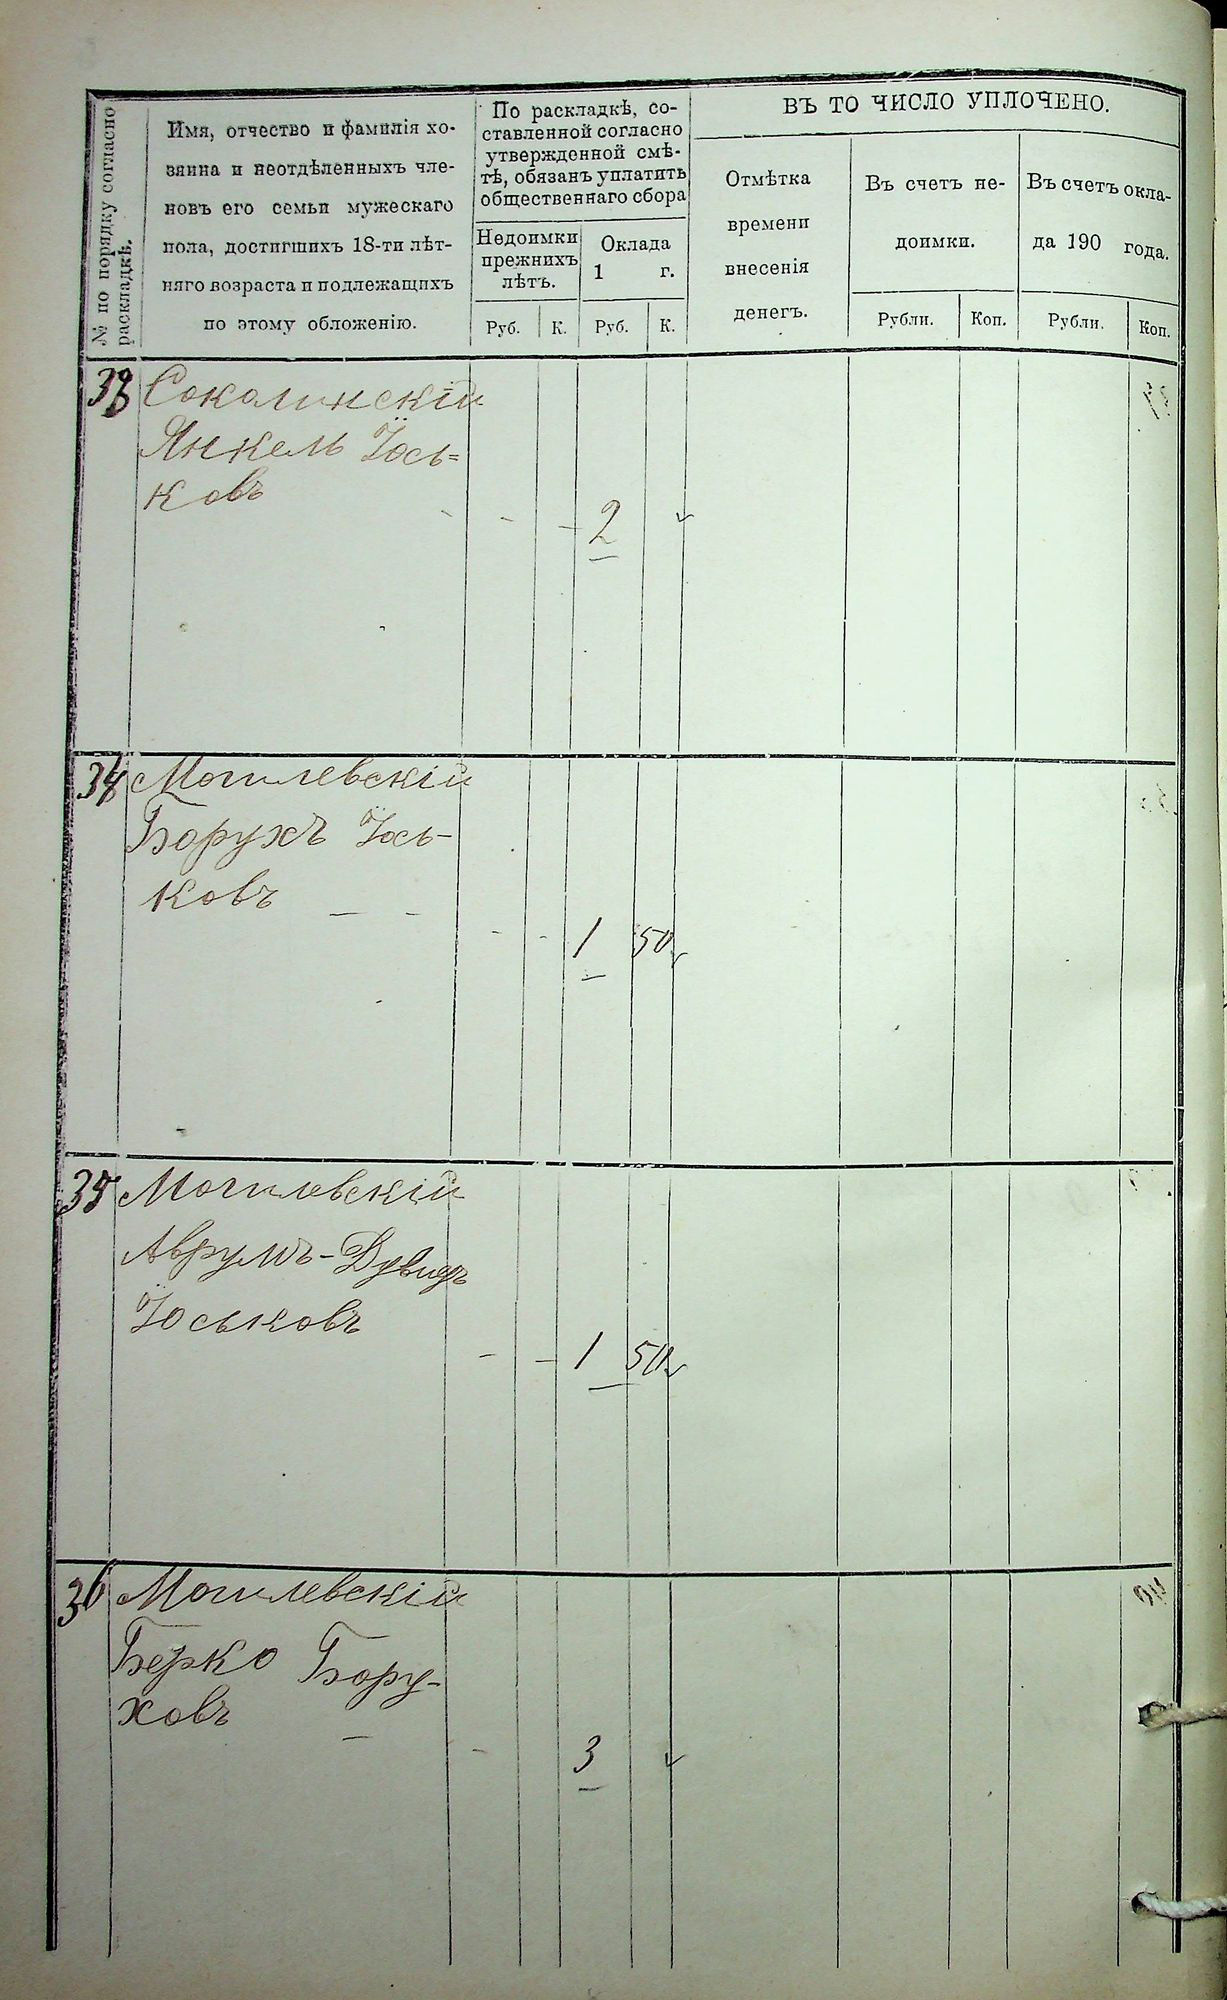 № по порядку согласно
раскладкѣ.
Имя, отчество и фамилія хо-
зяина и неотдѣленныхъ чле-
новъ его семьи мужескаго
пола, достигшихъ 18-ти лѣт-
няго возраста и подлежащихъ
по этому обложенію.
По раскладкѣ, со-
ставленной согласно
утвержденной смѣ-
тѣ, обязанъ уплатить
общественнаго сбора
Недоимки
прежнихъ
лѣтъ.
Руб. К.
Оклада
1 г.
Руб. К.
ВЪ ТО ЧИСЛО УПЛОЧЕНО.
Отмѣтка
времени
внесенія
денегъ.
Въ счетъ не-
доимки.
Рубли. Коп.
Въ счетъ окла-
да 190 года.
Рубли. Коп.
Соколинскій
Янкель Іось=
ковъ
- - - 2
34 Могилевскій
Борухъ Іось-
ковъ - -
- - 1 50
35 Могилевскій
Аврумъ-Дувидъ
Іоськовъ
- - 1 50
36 Могилевскій
Берко Бору-
ховъ -
- 3